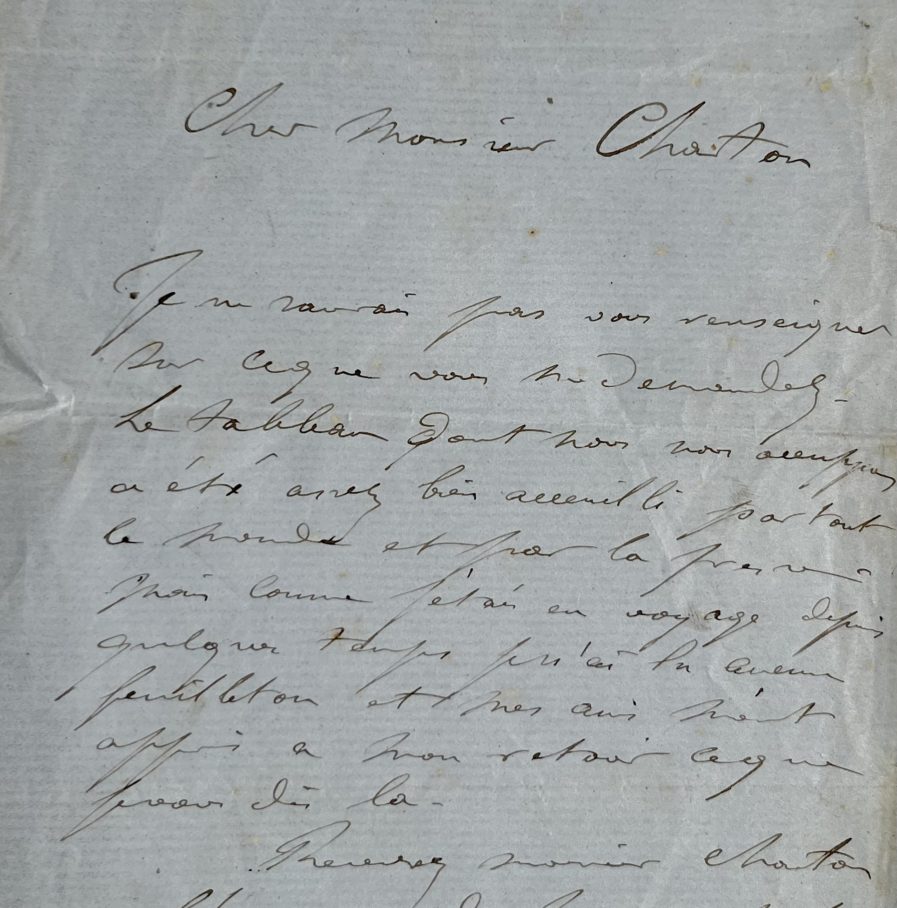 Cher Monsieur Charton
Je ne saurais pas vous renseigner
sur ceque vous me demandez -
Le tableau dont nous nous occuppons
a été assez bien acceuilli par tout
le monde et par la presse -
mais comme j'étais en voyage depuis
quelque temps je n'ai lu aucun
feuilleton et mes amis m'ont
appris a mon retour ceque
je vous dis la -
Recevez monsieur Charton